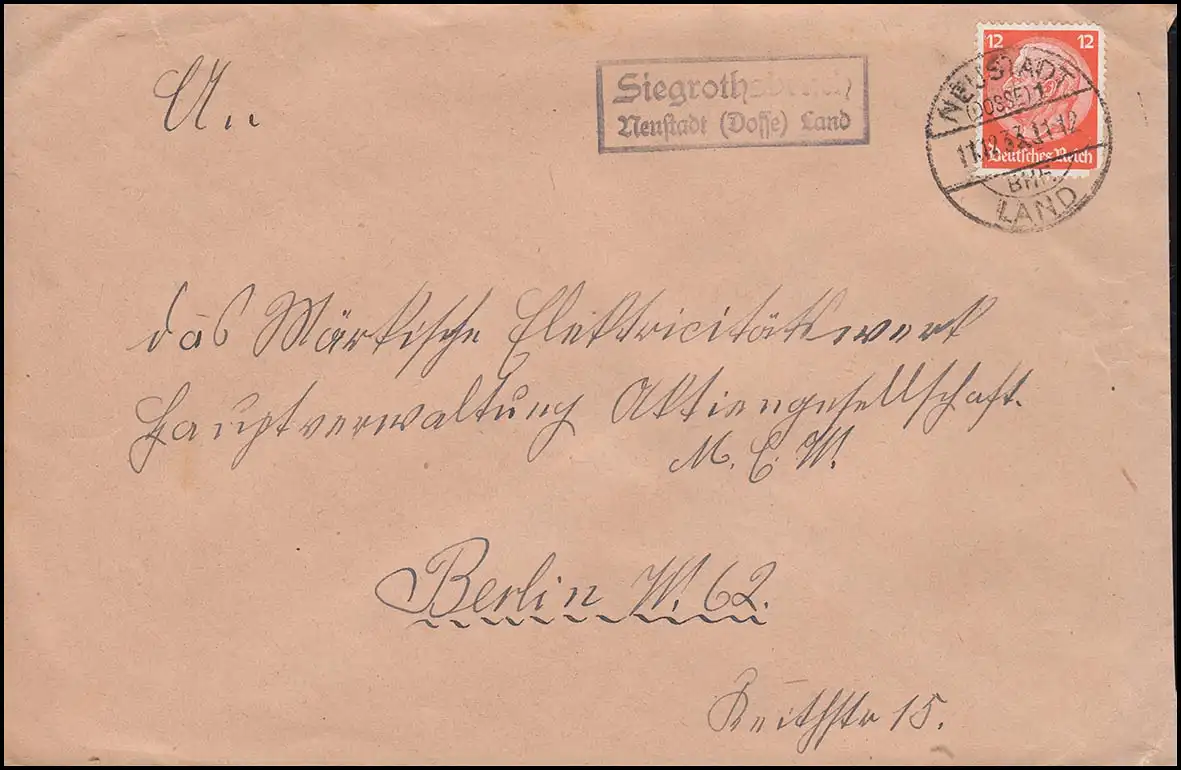 An
Siegrothsbruch
Neustadt (Dosse) Land
12 12
Deutsches Reich
NEUSTADT
(DOSSE) 1
11.12.33.11-12
BHF.
LAND
das Märkische Elektricitätswerk
Hauptverwaltung Aktiengesellschaft.
M. E. W.
Berlin W. 62.
Keithstr 15.